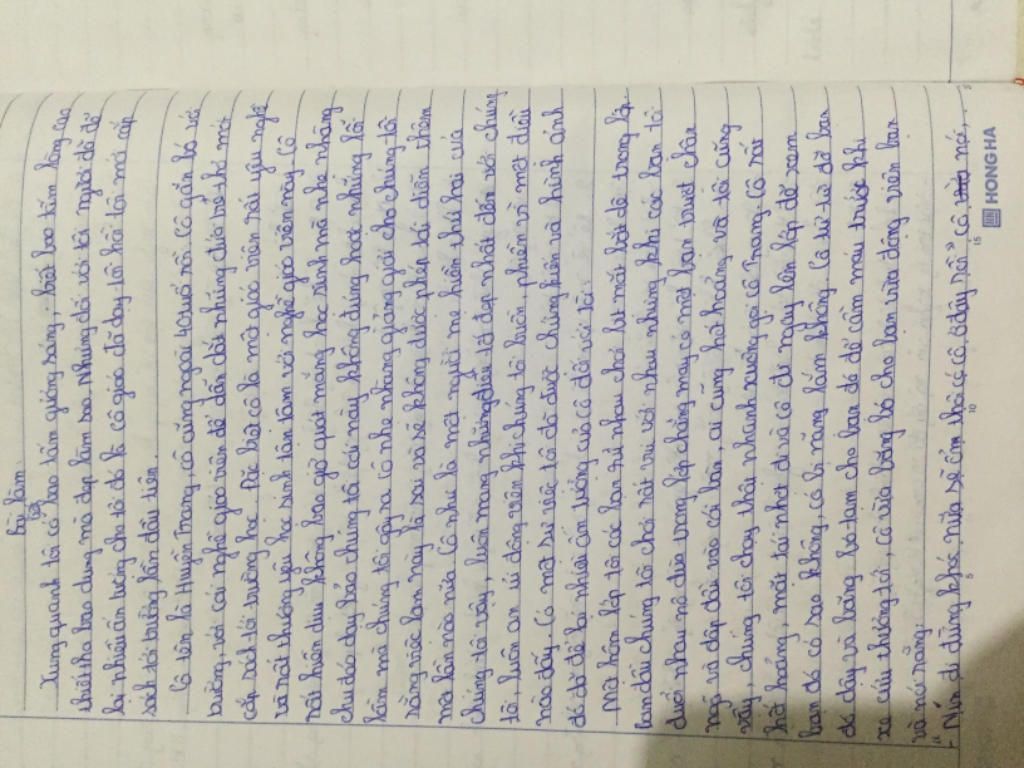 Bài làm
Xung quanh tôi có bao tấm gương sáng, biết bao tấm lòng cao
thiết tha bao dung mà đẹp làm sao. Nhưng đối với tôi người đã để
lại nhiều ấn tượng cho tôi đó là cô giáo đã dạy tôi hồi tôi mới cắp
sách tới trường lần đầu tiên.
Cô tên là Huyền Trang, cô cũng ngoài 40 tuổi rồi. Cô gắn bó với
trường, với cái nghề giáo viên để dẫn dắt những đứa trẻ thơ mới
cắp sách tới trường học. Đặc biệt cô là một giáo viên rất yêu nghề
và rất thương yêu học sinh tận tâm với nghề giáo viên này. Cô
rất hiền dịu không bao giờ quát mắng học sinh mà nhẹ nhàng
chu đáo dạy bảo chúng tôi cái này không đúng hoặc những lỗi
lầm mà chúng tôi gây ra cô nhẹ nhàng giảng giải cho chúng tôi
rằng việc làm này là sai và sẽ không được phép tái diễn thêm
một lần nào nữa. Cô như là một người mẹ hiền thứ hai của
chúng tôi vậy, luôn mang những điều tốt đẹp nhất đến với chúng
tôi, luôn an ủi động viên khi chúng tôi buồn, phiền vì một điều
nào đấy. Có một sự việc tôi đã được chứng kiến và hình ảnh
đó đã để lại nhiều ấn tượng của cô đối với tôi:
Một hôm lớp tôi các bạn rủ nhau chơi bịt mắt bắt dê trong lớp.
Lúc đầu chúng tôi chơi rất vui với nhau nhưng khi các bạn tôi
đuổi nhau nô đùa trong lớp chẳng may có một bạn trượt chân
ngã và đập đầu vào cái bàn, ai cũng hốt hoảng và tôi cũng
vậy, chúng tôi chạy thật nhanh xuống gọi cô Trang. Cô rất
hốt hoảng, mặt tái nhợt đi và cô đi ngay lên lớp để xem
bạn đó có sao không, có bị nặng lắm không. Cô từ từ đỡ bạn
đó dậy và băng bó tạm cho bạn đó để cầm máu trước khi
xe cứu thương tới, cô vừa băng bó cho bạn vừa động viên bạn
và nói rằng:
- "Nín đi đừng khóc nữa sẽ ổn thôi có cô ở đây rồi" cô nói,
HONG HA